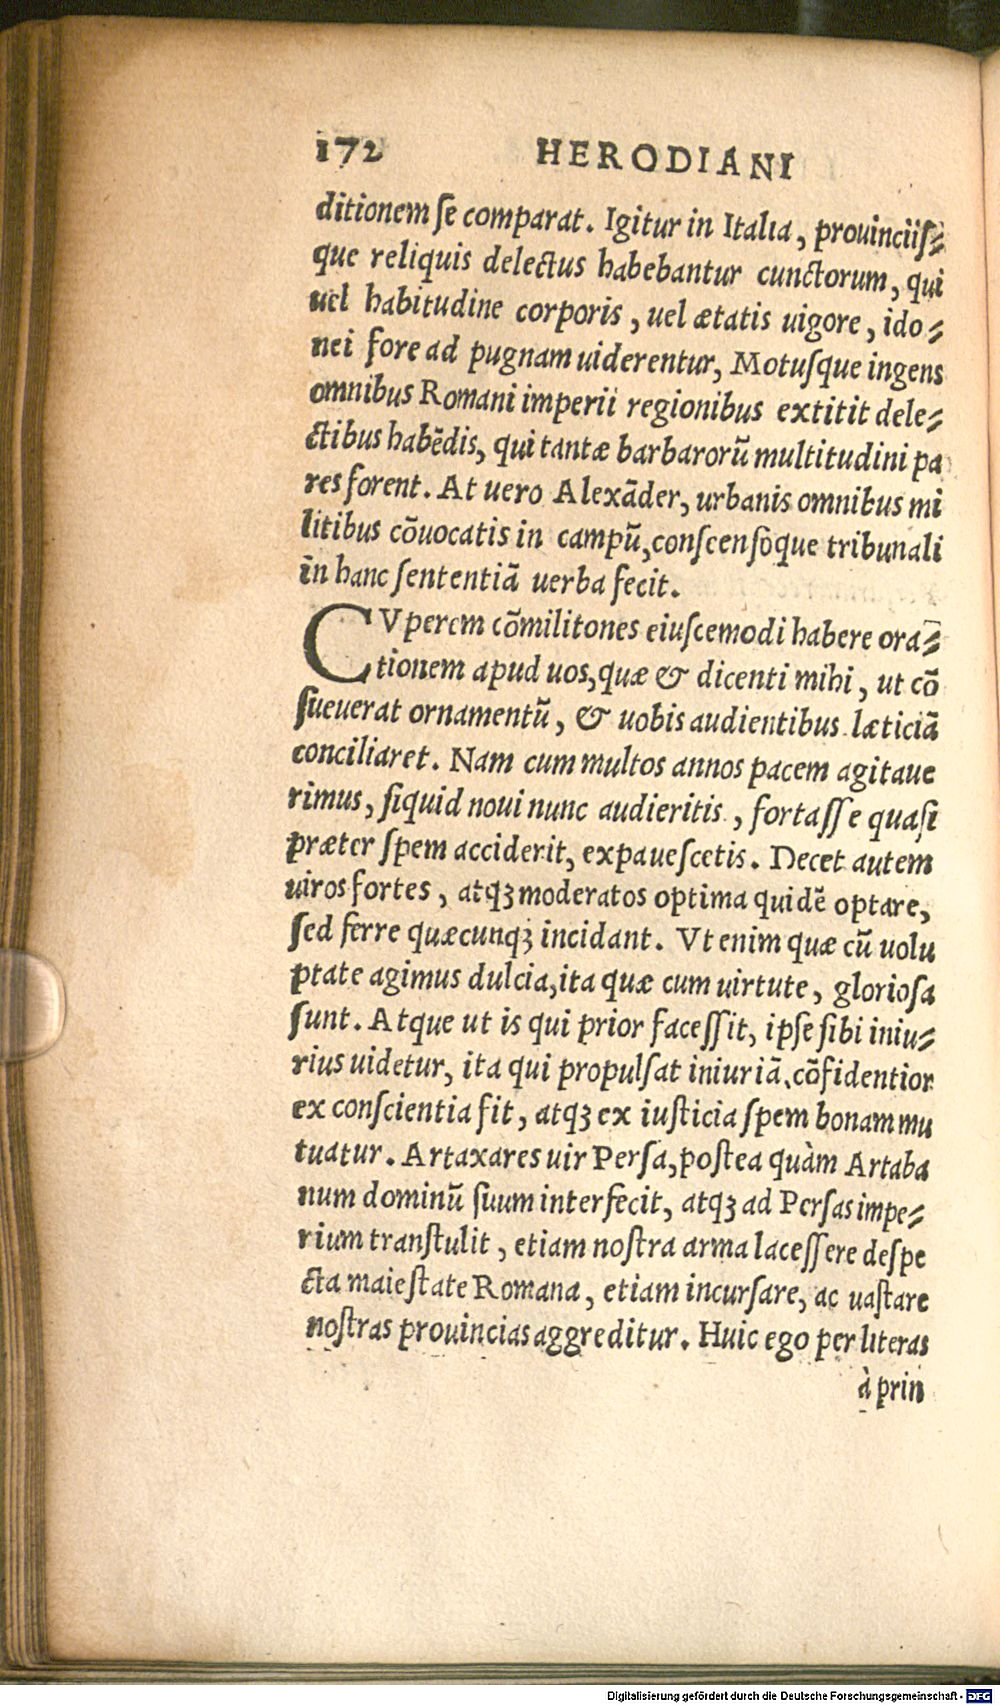 172 HERODIANI
ditionem ſe comparat. Igitur in Italia, prouinciiſ⸗
que reliquis delectus habebantur cunctorum, qui
uel habitudine corporis, uel ætatis uigore, ido⸗
nei fore ad pugnam uiderentur, Motuſque ingens
omnibus Romani imperii regionibus extitit dele⸗
ctibus habēdis, qui tantæ barbarorū multitudini pa
res forent. At uero Alexāder, urbanis omnibus mi
litibus cōuocatis in campū, conſcenſoque tribunali
in hanc ſententiā uerba fecit.
CVperem cōmilitones eiuſcemodi habere ora⸗
tionem apud uos, quæ & dicenti mihi, ut cō
ſueuerat ornamentū, & uobis audientibus læticiā
conciliaret. Nam cum multos annos pacem agitaue
rimus, ſiquid noui nunc audieritis, fortaſſe quaſi
præter ſpem acciderit, expaueſcetis. Decet autem
uiros fortes, atqꝫ moderatos optima quidē optare,
ſed ferre quæcunqꝫ incidant. Vt enim quæ cū uolu
ptate agimus dulcia, ita quæ cum uirtute, glorioſa
ſunt. Atque ut is qui prior faceſſit, ipſe ſibi iniu⸗
rius uidetur, ita qui propulſat iniuriā, cōfidentior
ex conſcientia fit, atqꝫ ex iuſticia ſpem bonam mu
tuatur. Artaxares uir Perſa, poſtea quàm Artaba
num dominū ſuum interfecit, atqꝫ ad Perſas impe⸗
rium tranſtulit, etiam noſtra arma laceſſere deſpe
cta maieſtate Romana, etiam incurſare, ac uaſtare
noſtras prouincias aggreditur. Huic ego per literas
à prin
Digitalisierung gefördert durch die Deutsche Forschungsgemeinschaft - DFG